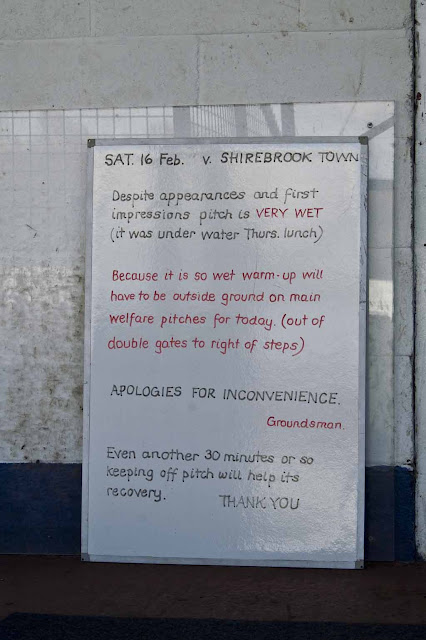 SAT. 16 Feb. v. SHIREBROOK TOWN
Despite appearances and first
impressions pitch is VERY WET
(it was under water Thurs. lunch)
Because it is so wet warm-up will
have to be outside ground on main
welfare pitches for today. (out of
double gates to right of steps)
APOLOGIES FOR INCONVENIENCE.
Groundsman.
Even another 30 minutes or so
keeping off pitch will help its
recovery. THANK YOU